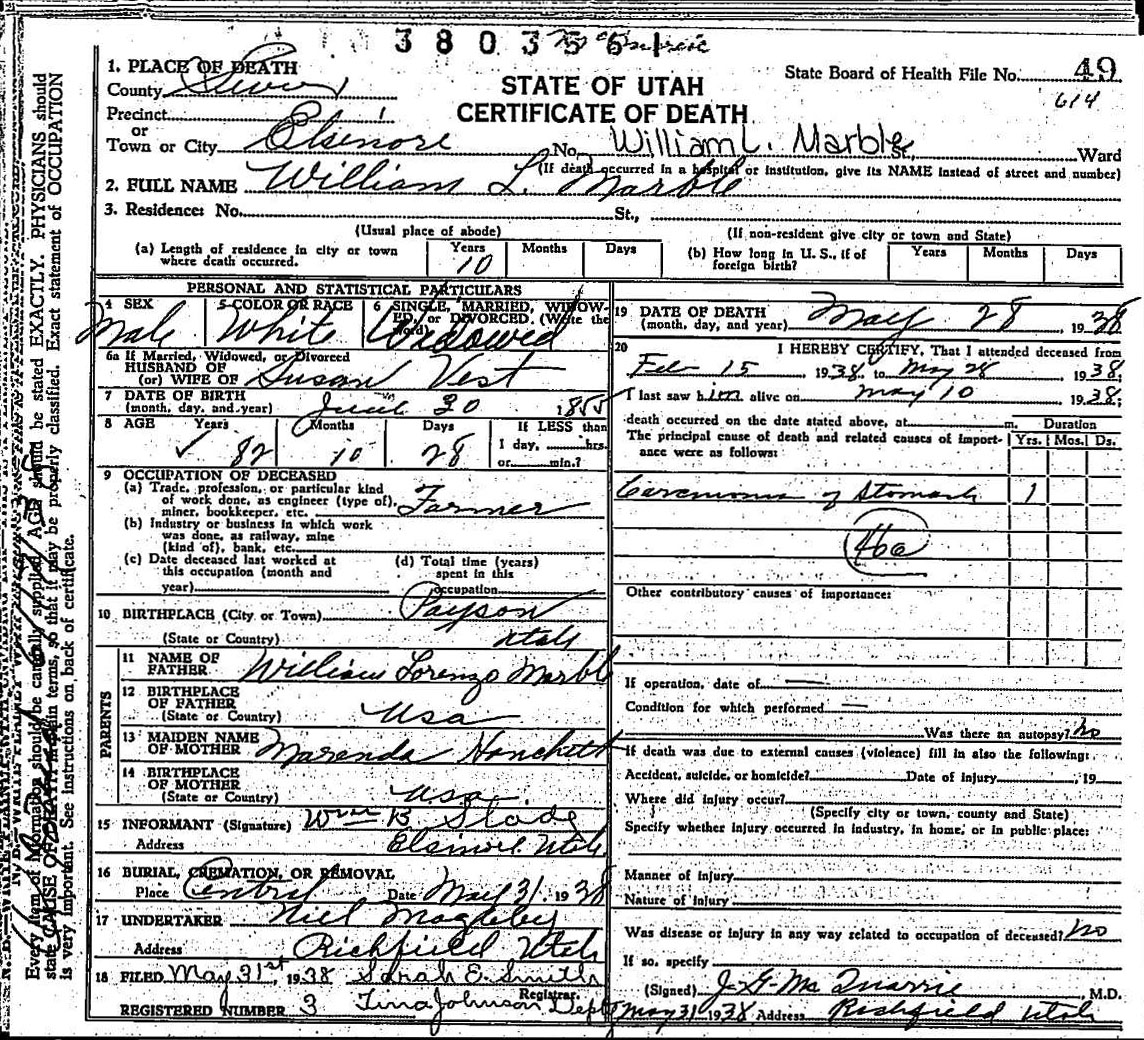 3803561
1. PLACE OF DEATH
STATE OF UTAH
State Board of Health File No. 49
County Sevier
CERTIFICATE OF DEATH
614
Precinct
or
Town or City Elsinore No. William L. Marble St., Ward
(If death occurred in a hospital or institution, give its NAME instead of street and number)
2. FULL NAME William L. Marble
3. Residence: No. St.,
(Usual place of abode) (If non-resident give city or town and State)
(a) Length of residence in city or town where death occurred. Years 10 Months Days
(b) How long in U. S., if of foreign birth? Years Months Days
PERSONAL AND STATISTICAL PARTICULARS
4 SEX Male
5 COLOR OR RACE White
6 SINGLE, MARRIED, WIDOWED, or DIVORCED. (Write the word) Widowed
6a If Married, Widowed, or Divorced
HUSBAND OF
(or) WIFE OF Susan Vest
7 DATE OF BIRTH
(month, day, and year) June 30 1855
8 AGE Years 82 Months 10 Days 28 If LESS than 1 day, hrs. or min.?
9 OCCUPATION OF DECEASED
(a) Trade, profession, or particular kind
of work done, as engineer (type of), Farmer
miner, bookkeeper, etc.
(b) Industry or business in which work
was done, as railway, mine
(kind of), bank, etc.
(c) Date deceased last worked at
this occupation (month and
year)
(d) Total time (years)
spent in this
occupation
10 BIRTHPLACE (City or Town) Payson
(State or Country) Utah
PARENTS
11 NAME OF
FATHER William Lorenzo Marble
12 BIRTHPLACE
OF FATHER
(State or Country) USA
13 MAIDEN NAME
OF MOTHER Marenda Hanchett
14 BIRTHPLACE
OF MOTHER
(State or Country) USA
15 INFORMANT (Signature) Wm B. Slade
Address Elsinore Utah
16 BURIAL, CREMATION, OR REMOVAL
Place Central Date May 31 1938
17 UNDERTAKER Niel Magleby
Address Richfield Utah
18 FILED May 31st, 1938 Sarah E. Smith
Registrar.
REGISTERED NUMBER 3 Tina Johnson Dept
19 DATE OF DEATH
(month, day, and year) May 28 1938
20 I HEREBY CERTIFY, That I attended deceased from
Feb 15, 1938, to May 28 1938;
I last saw him alive on May 10 1938;
death occurred on the date stated above, at m.
Duration
The principal cause of death and related causes of importance were as follows: Yrs. Mos. Ds.
Carcinoma of Stomach 1
46a
Other contributory causes of importance:
If operation, date of —
Condition for which performed —
Was there an autopsy? No
If death was due to external causes (violence) fill in also the following:
Accident, suicide, or homicide? Date of injury , 19
Where did injury occur?
(Specify city or town, county and State)
Specify whether injury occurred in industry, in home, or in public place:
Manner of injury
Nature of injury
Was disease or injury in any way related to occupation of deceased? No
If so, specify
(Signed) J. G. McQuarrie, M.D.
May 31 1938 Address Richfield Utah
Every item of information should be carefully supplied. AGE should be stated EXACTLY. PHYSICIANS should
state CAUSE OF DEATH in plain terms, so that it may be properly classified. Exact statement of OCCUPATION
is very important. See instructions on back of certificate.